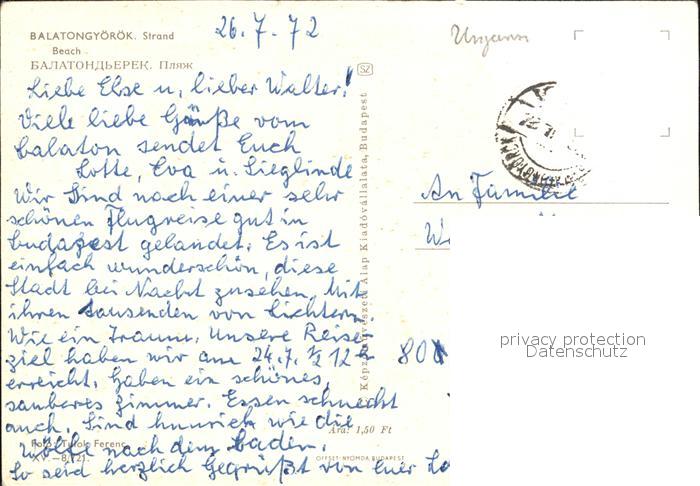 26.7.72
Ungarn
BALATONGYÖRÖK. Strand
Beach
БАЛАТОНДЬЕРЕК. Пляж
Liebe Else u. lieber Walter!
Viele liebe Grüße vom
Balaton sendet Euch
Lotte, Eva u. Sieglinde
Wir sind nach einer sehr
schönen Flugreise gut in
Budapest gelandet. Es ist
einfach wunderschön, diese
Stadt bei Nacht zusehen, Mit
ihren tausenden von Lichtern
Wie ein Traum. Unsere Reise-
ziel haben wir am 24.7. ½ 12 h
erreicht. Haben ein schönes,
sauberes Zimmer. Essen schmeckt
auch. Sind hungrich wie die
Wölfe nach dem baden.
So seid herzlich Gegrüßt von Euer
Képzőművészeti Alap Kiadóvállalata, Budapest
SZ
An Familie
800
privacy protection
Datenschutz
Ára: 1,50 Ft
Foto: Tulok Ferenc
OFFSET-NYOMDA BUDAPEST